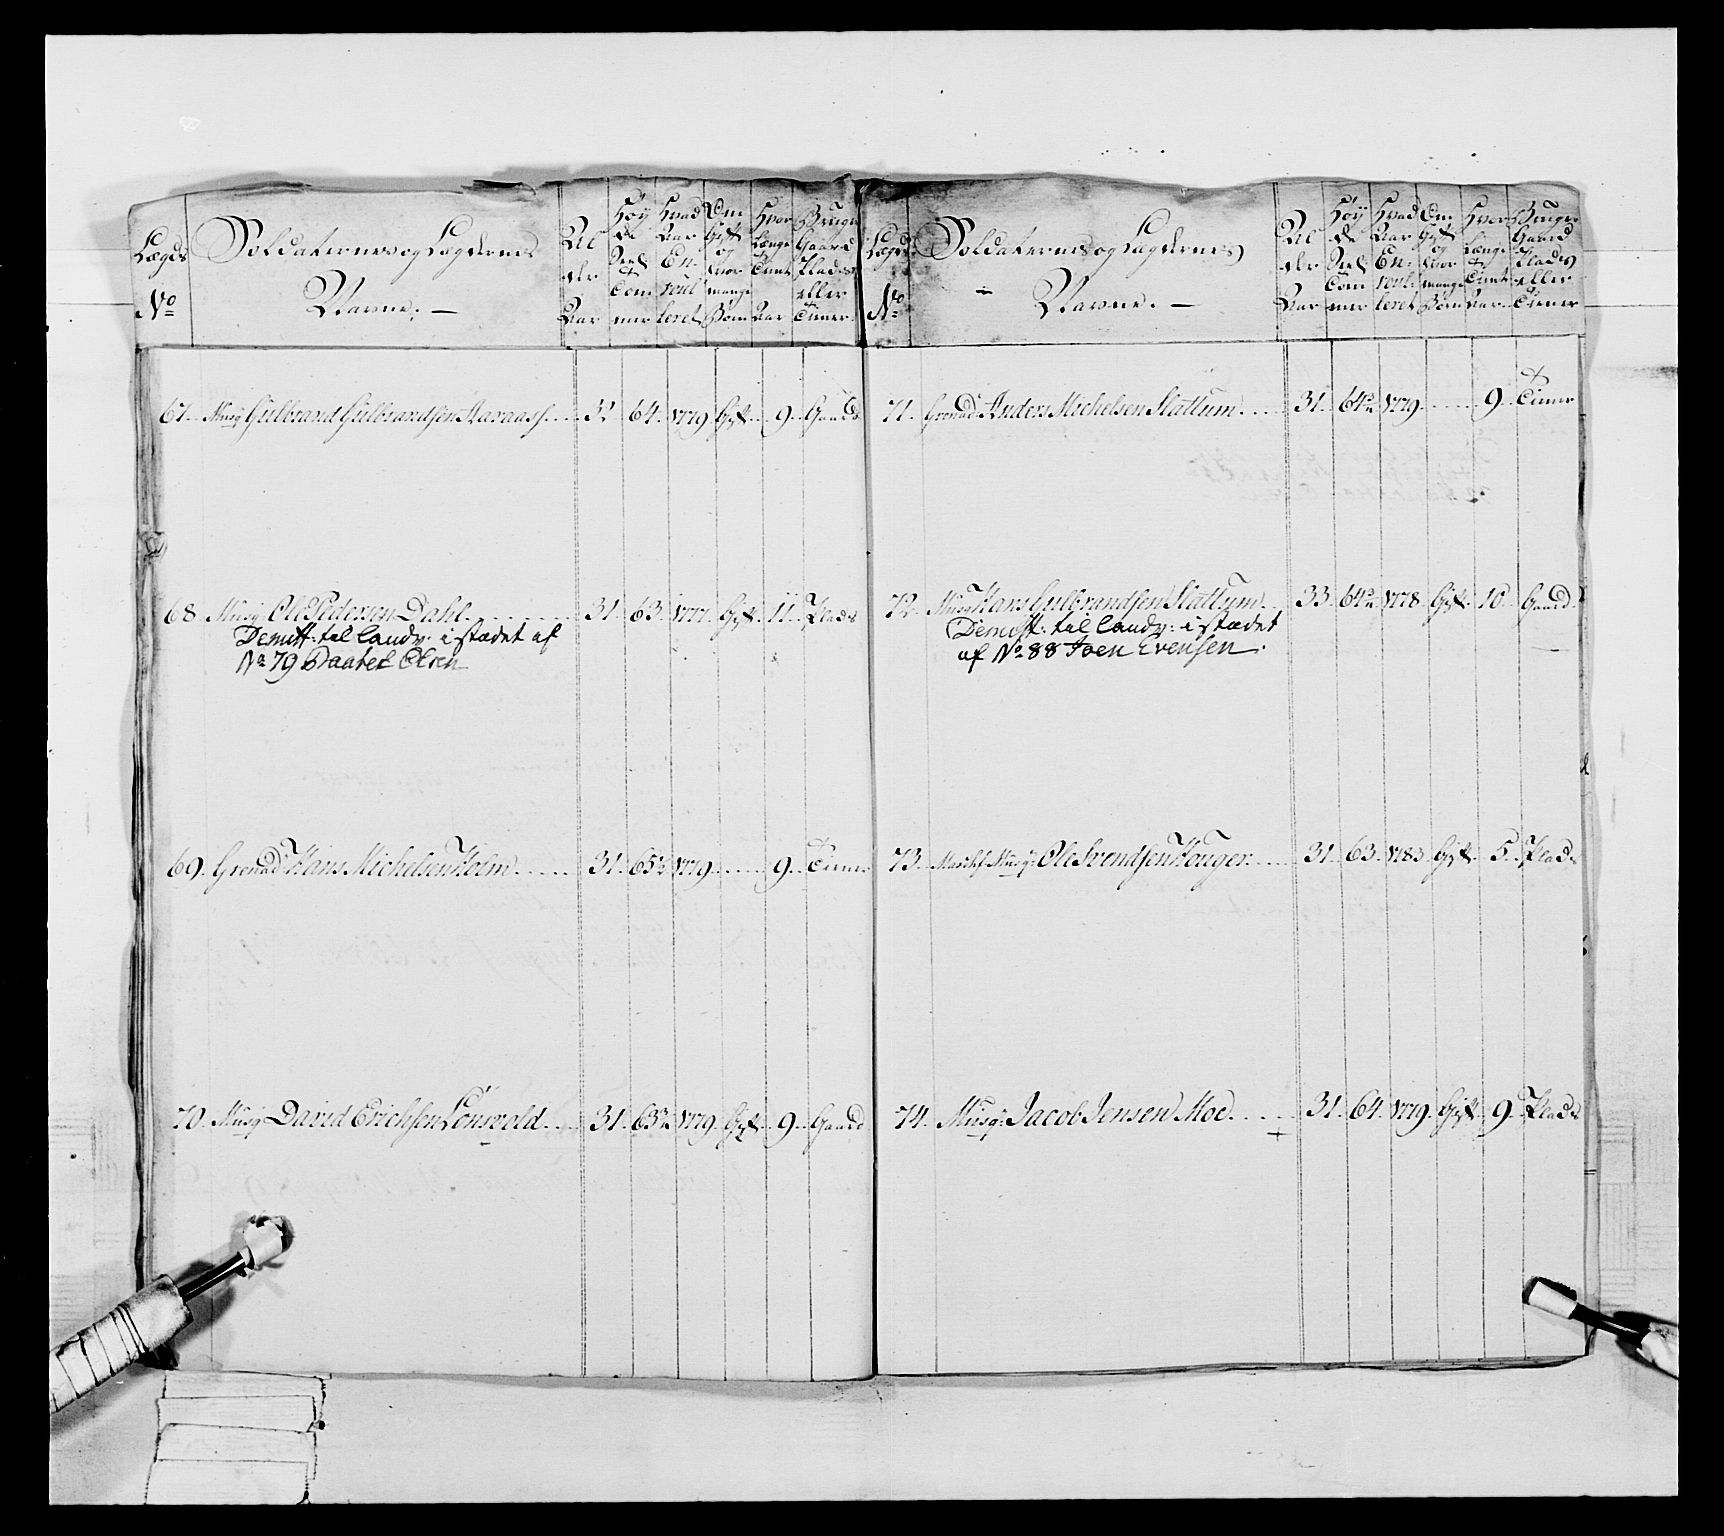 Lægds No
Soldaternes og Lægdernes Navne. —
Al der Aar
Høy de Tom mer
Hvad Aar En roul leret
Om Gift og hvor mange Børn
Hvor Længe Tient Aar
Bruger Gaard Plads eller Tiener
67. Musq Gulbrand Gulbrandsen Aaraas 31 64. 1779. Gift. 9. Gaard
68 Musq Ole Pedersen Dahl. 31. 63. 1777. Gift. 11. Plads
Demitt: til landv: i stædet af
No 79 Olsen
69. Grenad Hans Michelsen Holm. 31. 65½ 1779. 9. Tiener
70. Musq David Erichsen Lonvold. 31. 63½ 1779. Gift. 9. Gaard
Lægds No
Soldaternes og Lægdernes Navne. —
Al der Aar
Høy de Tom mer
Hvad Aar En roul leret
Om Gift og hvor mange Børn
Hvor Længe Tient Aar.
Bruger Gaard Plads eller Tiener
71. Grenad Anders Michelsen Slattum. 31. 64½ 1779. 9. Tiener
72. Musq Hans Gulbrandsen Slattum. 33. 64½ 1778. Gift. 10. Gaard.
Demitt: til landv: i stædet
af No 88 Joen Evensen.
73. Musq: Ole Svendsen Houger. 31. 63. 1783. Gift. 5. Plads
74. Musq: Jacob Jensen Moe. 31. 64. 1779. Gift. 9. Plads